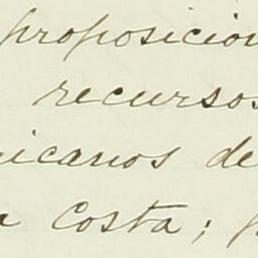 proposicion
recursos
icanos de
a Costa; p